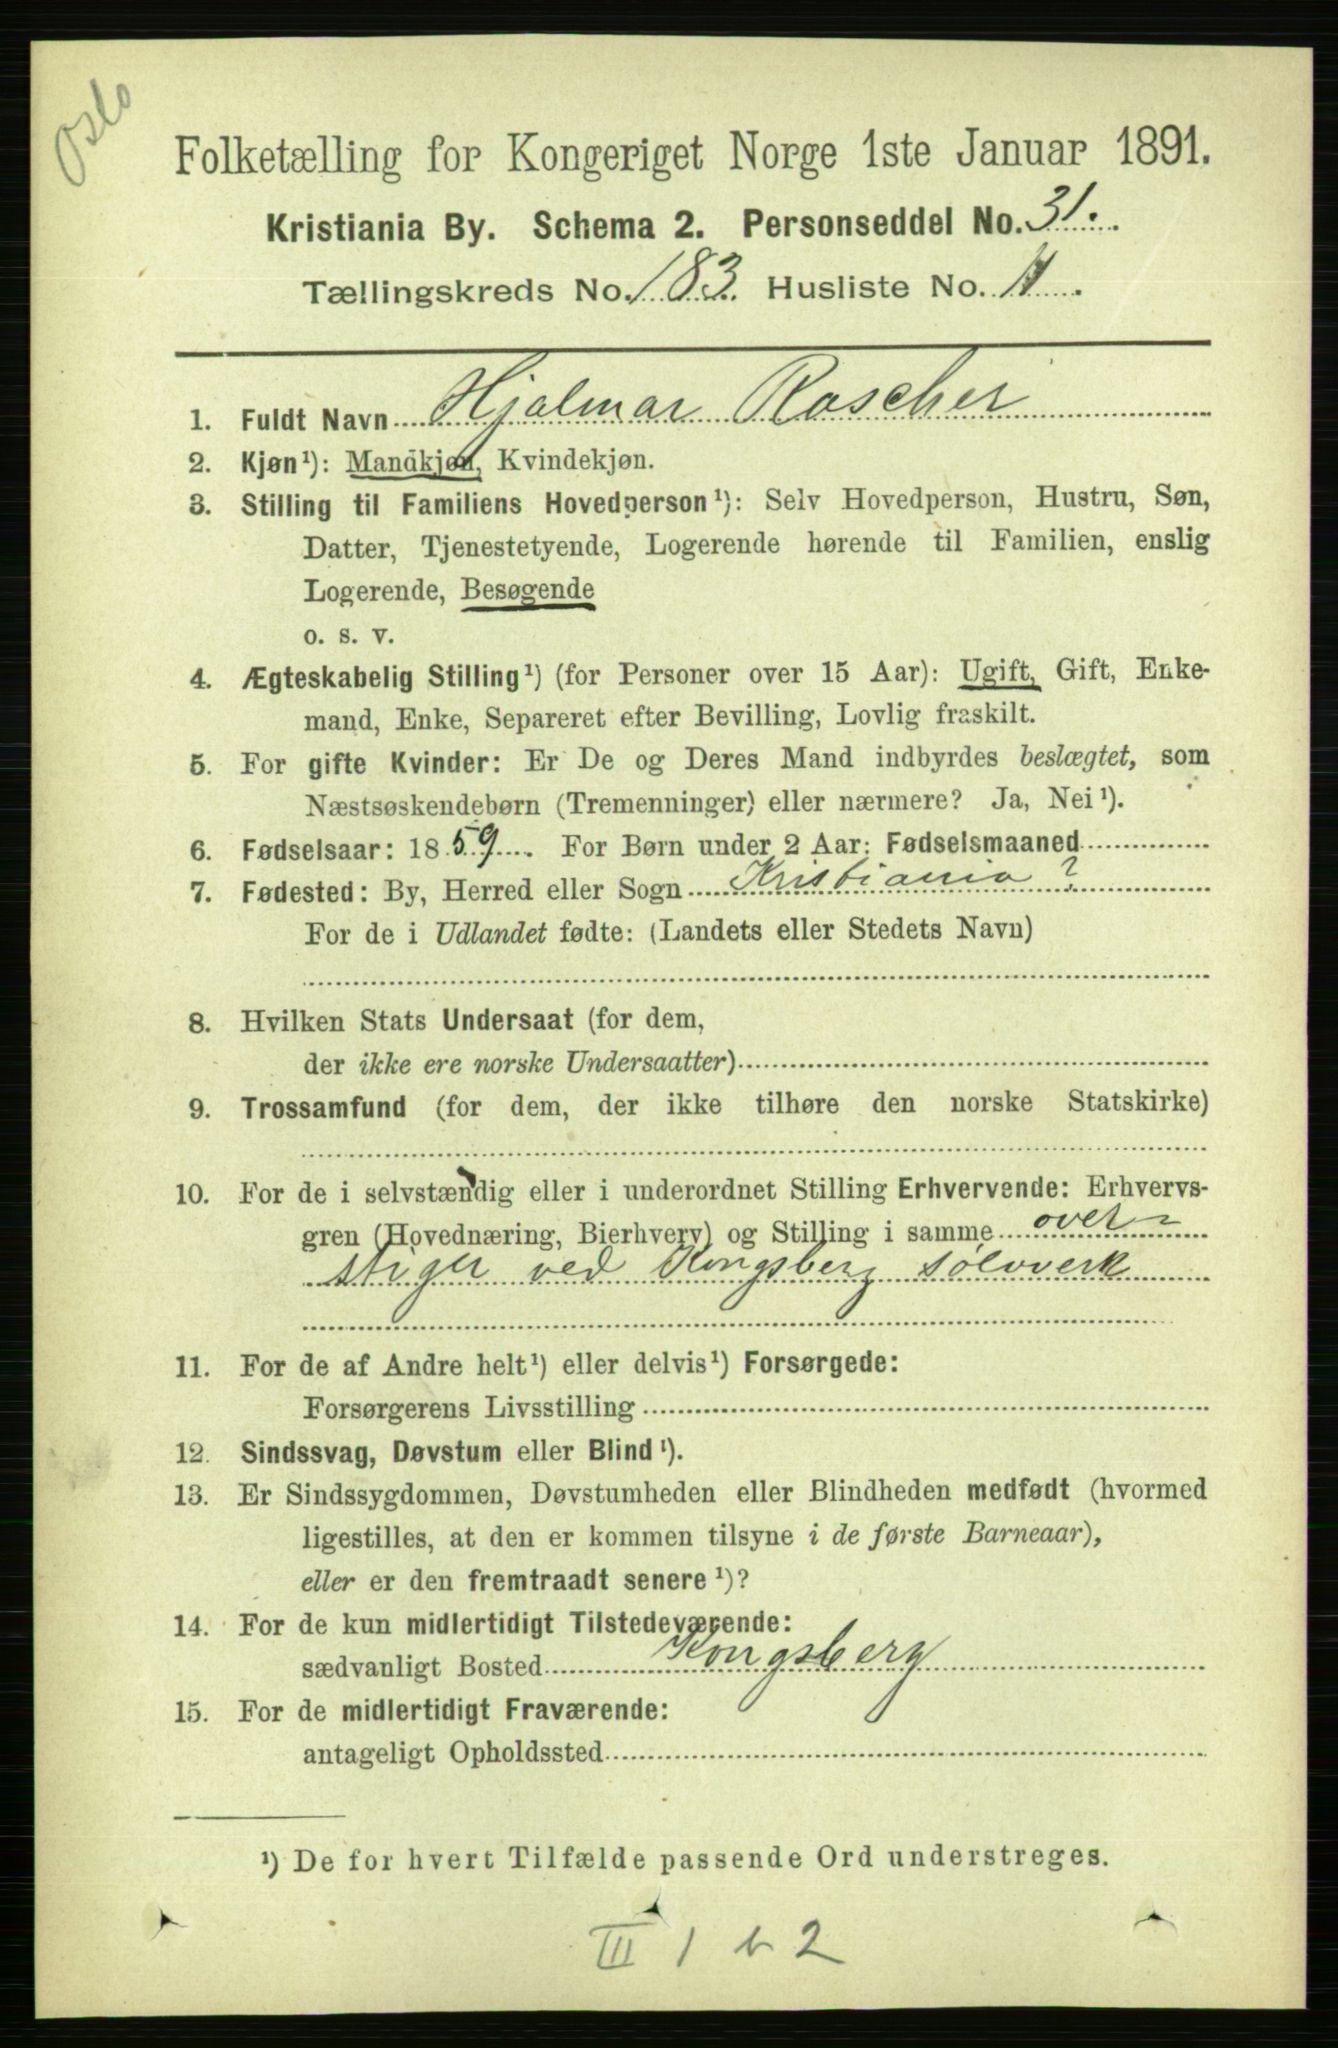 Oslo
Folketælling for Kongeriget Norge 1ste Januar 1891.
Kristiania By. Schema 2. Personseddel No. 31.
Tællingskreds No. 183. Husliste No. 4.
1. Fuldt Navn Hjalmar Roscher
2. Kjøn¹): Mandkjøn, Kvindekjøn.
3. Stilling til Familiens Hovedperson¹): Selv Hovedperson, Hustru, Søn,
Datter, Tjenestetyende, Logerende hørende til Familien, enslig
Logerende, Besøgende
o. s. v.
4. Ægteskabelig Stilling¹) (for Personer over 15 Aar): Ugift, Gift, Enke-
mand, Enke, Separeret efter Bevilling, Lovlig fraskilt.
5. For gifte Kvinder: Er De og Deres Mand indbyrdes beslægtet, som
Næstsøskendebørn (Tremenninger) eller nærmere? Ja, Nei¹).
6. Fødselsaar: 1859. For Børn under 2 Aar: Fødselsmaaned
7. Fødested: By, Herred eller Sogn Kristiania?
For de i Udlandet fødte: (Landets eller Stedets Navn)
8. Hvilken Stats Undersaat (for dem,
der ikke ere norske Undersaatter)
9. Trossamfund (for dem, der ikke tilhøre den norske Statskirke)
10. For de i selvstændig eller i underordnet Stilling Erhvervende: Erhvervs-
gren (Hovednæring, Bierhverv) og Stilling i samme over-
stiger ved Kongsberg sølvverk
11. For de af Andre helt¹) eller delvis¹) Forsørgede:
Forsørgerens Livsstilling
12. Sindssvag, Døvstum eller Blind¹).
13. Er Sindssygdommen, Døvstumheden eller Blindheden medfødt (hvormed
ligestilles, at den er kommen tilsyne i de første Barneaar),
eller er den fremtraadt senere¹)?
14. For de kun midlertidigt Tilstedeværende:
sædvanligt Bosted Kongsberg
15. For de midlertidigt Fraværende:
antageligt Opholdssted
¹) De for hvert Tilfælde passende Ord understreges.
III 1 b 2